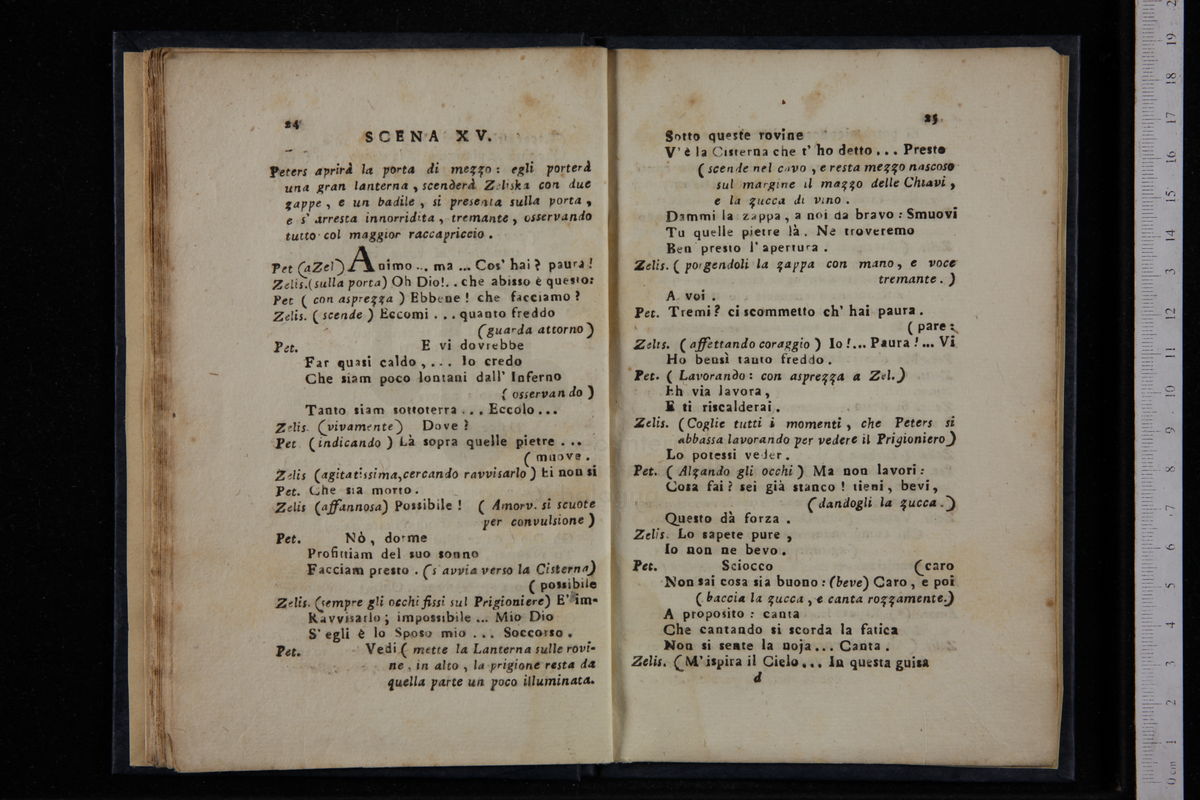 24
SCENA XV.
Peters aprirà la porta di mezzo: egli porterà
una gran lanterna, scenderà Zeliska con due
zappe, e un badile, si presenta sulla porta,
e s' arresta innorridita, tremante, osservando
tutto col maggior raccapriccio.
Pet (aZel) Animo ... ma ... Cos' hai? paura!
Zelis.(sulla porta) Oh Dio!.. che abisso è questo:
Pet ( con asprezza ) Ebbene! che facciamo?
Zelis. ( scende ) Eccomi ... quanto freddo
(guarda attorno)
Pet. E vi dovrebbe
Far quasi caldo, ... Io credo
Che siam poco lontani dall' Inferno
( osservando )
Tanto siam sottoterra ... Eccolo ...
Zelis. (vivamente) Dove?
Pet (indicando) Là sopra quelle pietre ...
( muove.
Zelis (agitatissima,cercando ravvisarlo) Ei non si
Pet. Che sia morto.
Zelis (affannosa) Possibile! ( Amorv. si scuote
per convulsione )
Pet. Nò, dorme
Profittiam del suo sonno
Facciam presto. (s'avvia verso la Cisterna)
( possibile
Zelis. (sempre gli occhi fissi sul Prigioniere) E' im-
Ravvisarlo; impossibile ... Mio Dio
S' egli è lo Sposo mio ... Soccorso.
Pet. Vedi ( mette la Lanterna sulle rovi-
ne, in alto, la prigione resta da
quella parte un poco illuminata.
25
Sotto queste rovine
V' è la Cisterna che t' ho detto ... Presto
( scende nel cavo, e resta mezzo nascoso
sul margine il mazzo delle Chiavi,
e la zucca di vino.
Dammi la zappa, a noi da bravo: Smuovi
Tu quelle pietre là. Ne troveremo
Ben presto l' apertura.
Zelis. ( porgendoli la zappa con mano, e voce
tremante. )
A voi.
Pet. Tremi? ci scommetto ch' hai paura.
( pare:
Zelis. ( affettando coraggio ) Io!... Paura!... Vi
Ho bensì tanto freddo.
Pet. ( Lavorando: con asprezza a Zel.)
Eh via lavora,
E ti riscalderai.
Zelis. (Coglie tutti i momenti, che Peters si
abbassa lavorando per vedere il Prigioniero)
Lo potessi veder.
Pet. ( Alzando gli occhi ) Ma non lavori:
Cosa fai? sei già stanco! tieni, bevi,
(dandogli la zucca.)
Questo dà forza.
Zelis. Lo sapete pure,
Io non ne bevo.
Pet. Sciocco (caro
Non sai cosa sia buono: (beve) Caro, e poi
( baccia la zucca, e canta rozzamente.)
A proposito: canta
Che cantando si scorda la fatica
Non si sente la noja... Canta.
Zelis. (M' ispira il Cielo... In questa guisa
d
0 cm 1 2 3 4 5 6 7 8 9 10 11 12 13 14 15 16 17 18 19